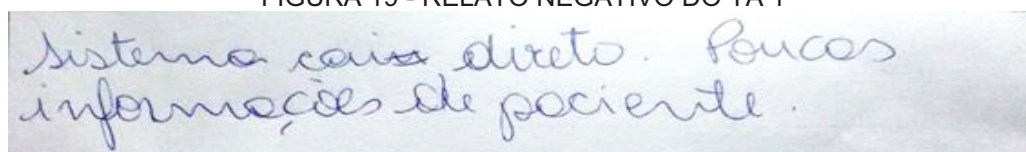 FIGURA 19 - RELATO NEGATIVO DO TA 1
Sistema cai direto. Poucas
informações de paciente.